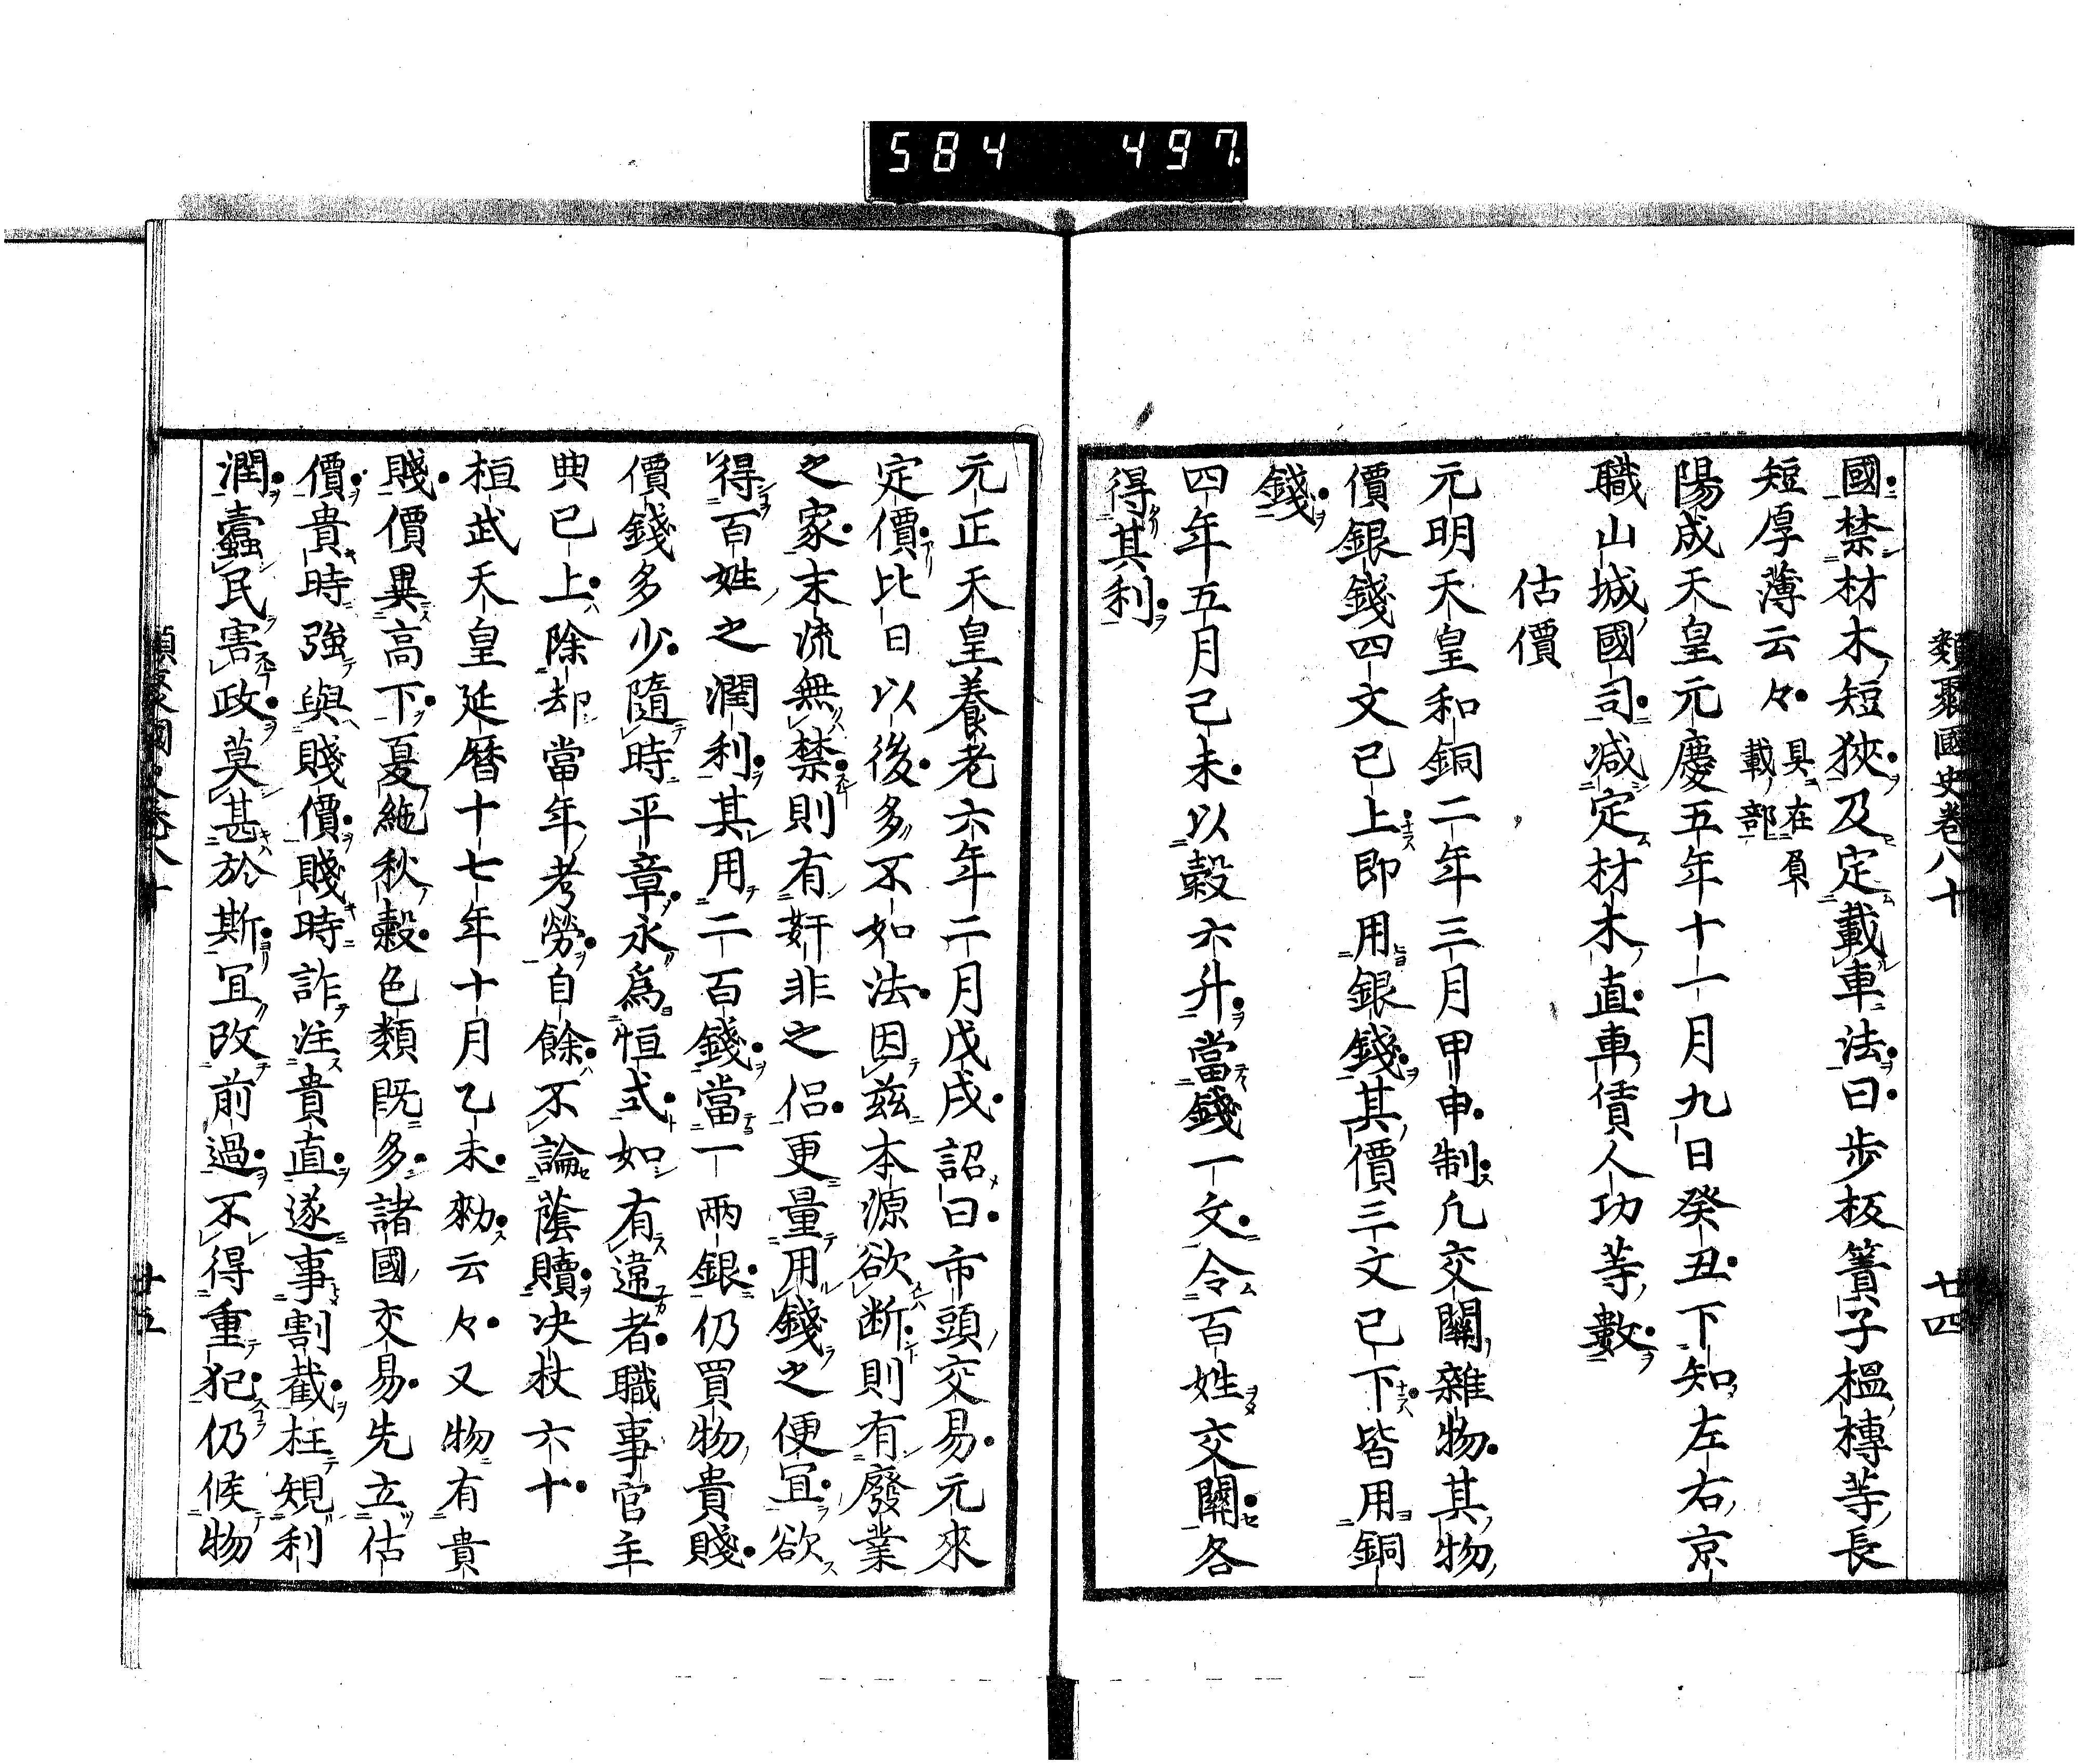 584 497
類聚國史卷八十 廿四
國禁材木短狹及定載車法曰歩板簀子榲榑等長
短厚薄云々具在負載部
陽成天皇元慶五年十一月九日癸丑下知左右京
職山城國司减定材木直車賃人功等數
估價
元明天皇和銅二年三月甲申制凢交關雜物其物
價銀錢四文已上即用銀錢其價三文已下皆用銅
錢
四年五月己未以穀六升當錢一文令百姓交關各
得其利
元正天皇養老六年二月戊戌詔曰市頭交易元來
定價比日以後多不如法因茲本源欲断則有廢業
之家末流無禁則有姧非之侶更量用錢之便冝欲
得百姓之潤利其用二百錢當一兩銀仍買物貴賤
價錢多少隨時平章永爲恒式如有違者職事官主
典已上除却當年考勞自餘不論蔭贖决杖六十
桓武天皇延暦十七年十月乙未勑云々又物有貴
賤價異高下夏絁秋穀色類既多諸國交易先立估
價貴時強與賤價賤時詐注貴直遂事割截枉規利
潤蠹民害政莫甚於斯冝改前過不得重犯仍候物
類聚國史卷八十 廿五